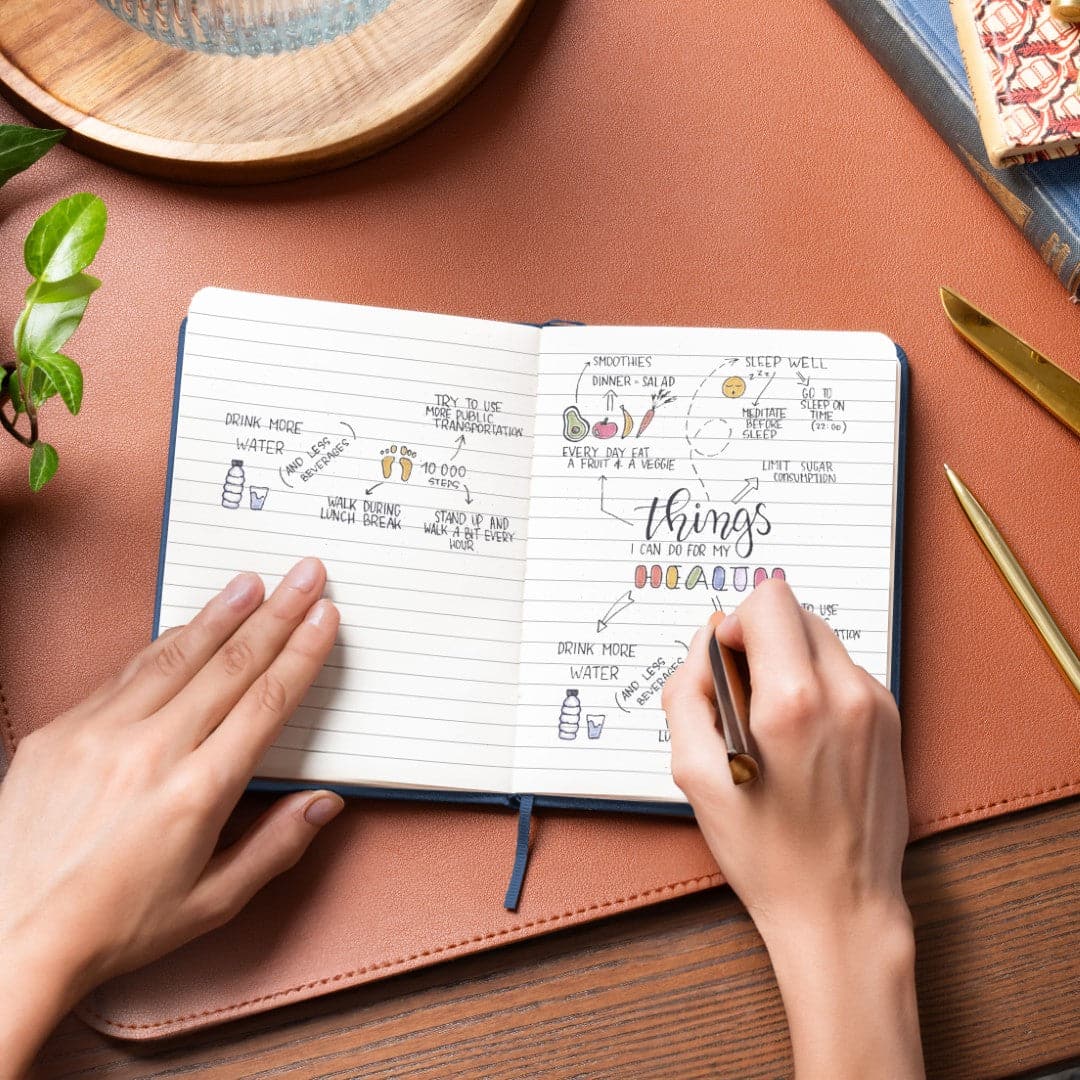 DRINK MORE
WATER
(AND LESS
BEVERAGES)
TRY TO USE
MORE PUBLIC
TRANSPORTATION
10 000
STEPS
WALK DURING
LUNCH BREAK
STAND UP AND
WALK A BIT EVERY
HOUR
SMOOTHIES
DINNER = SALAD
EVERY DAY EAT
A FRUIT & A VEGGIE
SLEEP WELL
zzzz
MEDITATE
BEFORE
SLEEP
GO TO
SLEEP ON
TIME
(22:00)
LIMIT SUGAR
CONSUMPTION
things
I CAN DO FOR MY
HEALTH
DRINK MORE
WATER
(AND LESS
BEVERAGES
TO USE
ATION
LU